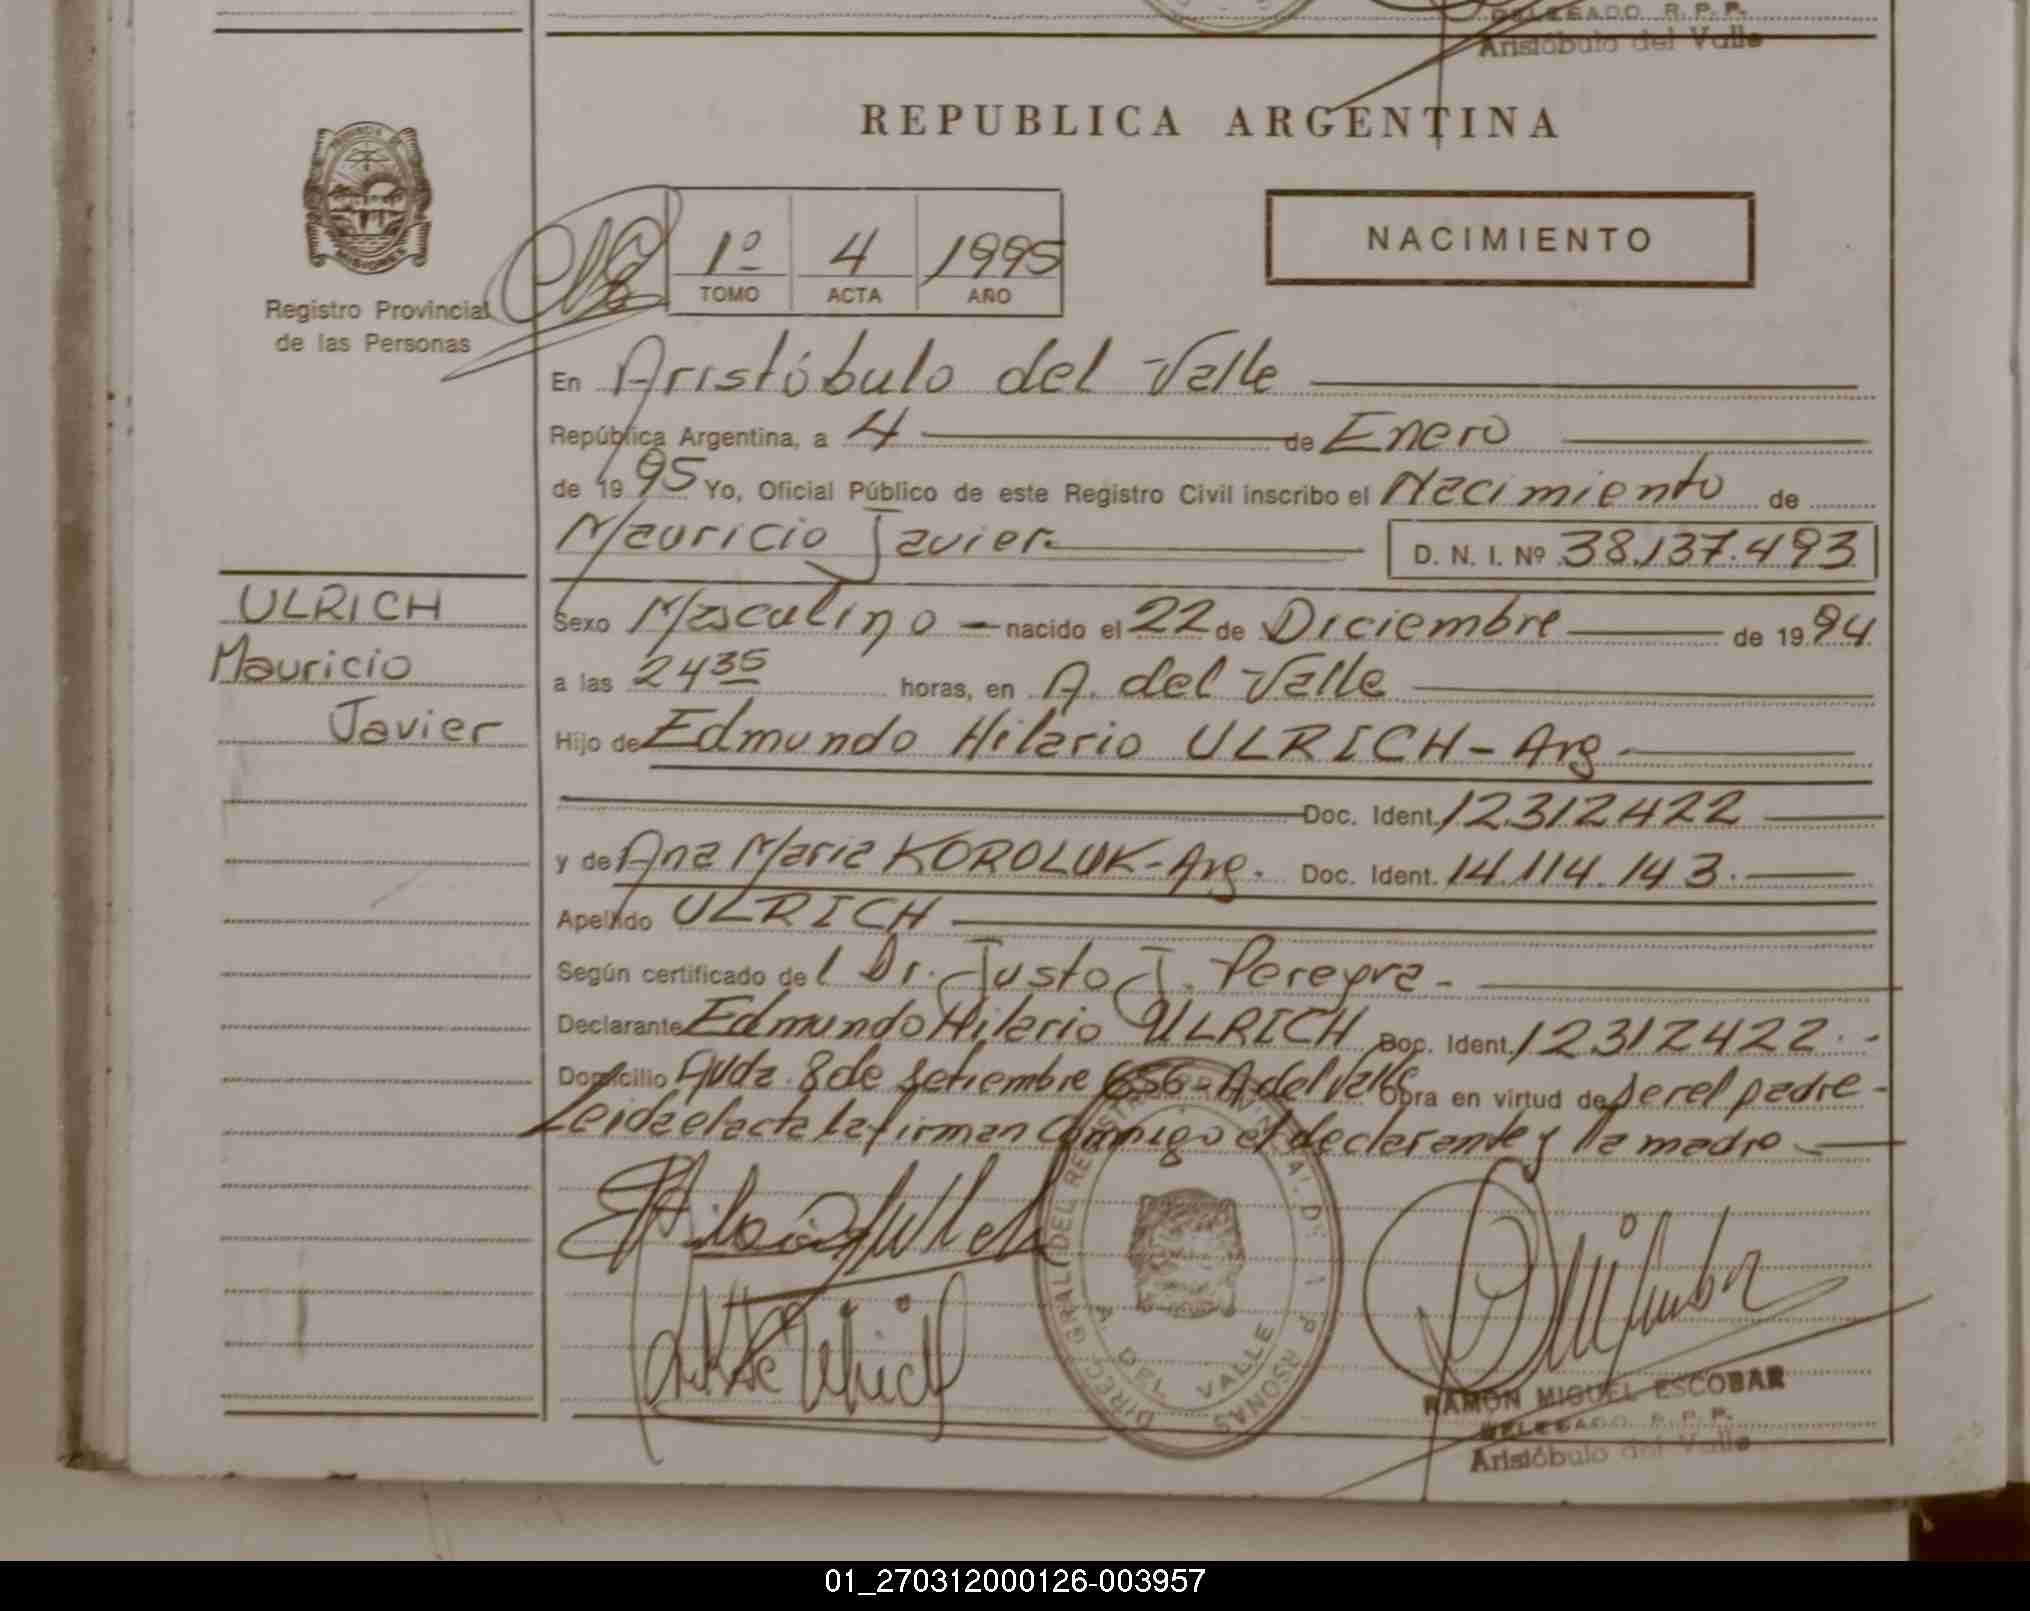 DELEGADO R.P.P.
Aristóbulo del Valle
REPUBLICA ARGENTINA
PROVINCIA DE
MISIONES
Registro Provincial
de las Personas
1º 4 1995
TOMO ACTA AÑO
NACIMIENTO
En Aristóbulo del Valle
República Argentina, a 4 de Enero
de 1995 Yo, Oficial Público de este Registro Civil inscribo el Nacimiento de
Mauricio Javier. D. N. I. Nº 38.137.493
ULRICH
Mauricio
Javier
Sexo Masculino - nacido el 22 de Diciembre de 1994.
a las 24 35 horas, en A. del Valle
Hijo de Edmundo Hilario ULRICH - Arg
Doc. Ident. 12312422
y de Ana Maria KOROLUK - Arg. Doc. Ident. 14.114.143.
Apellido ULRICH
Según certificado del Dr. Justo J. Pereyra -
Declarante Edmundo Hilario ULRICH Doc. Ident. 12312422. -
Domicilio Avda. 8 de setiembre 656 - A del Valle Obra en virtud de ser el padre -
Leida el acta la firman conmigo el declarante y la madre
A DEL VALLE
RAMON MIGUEL ESCOBAR
DELEGADO R.P.P.
Aristóbulo del Valle
01_270312000126-003957